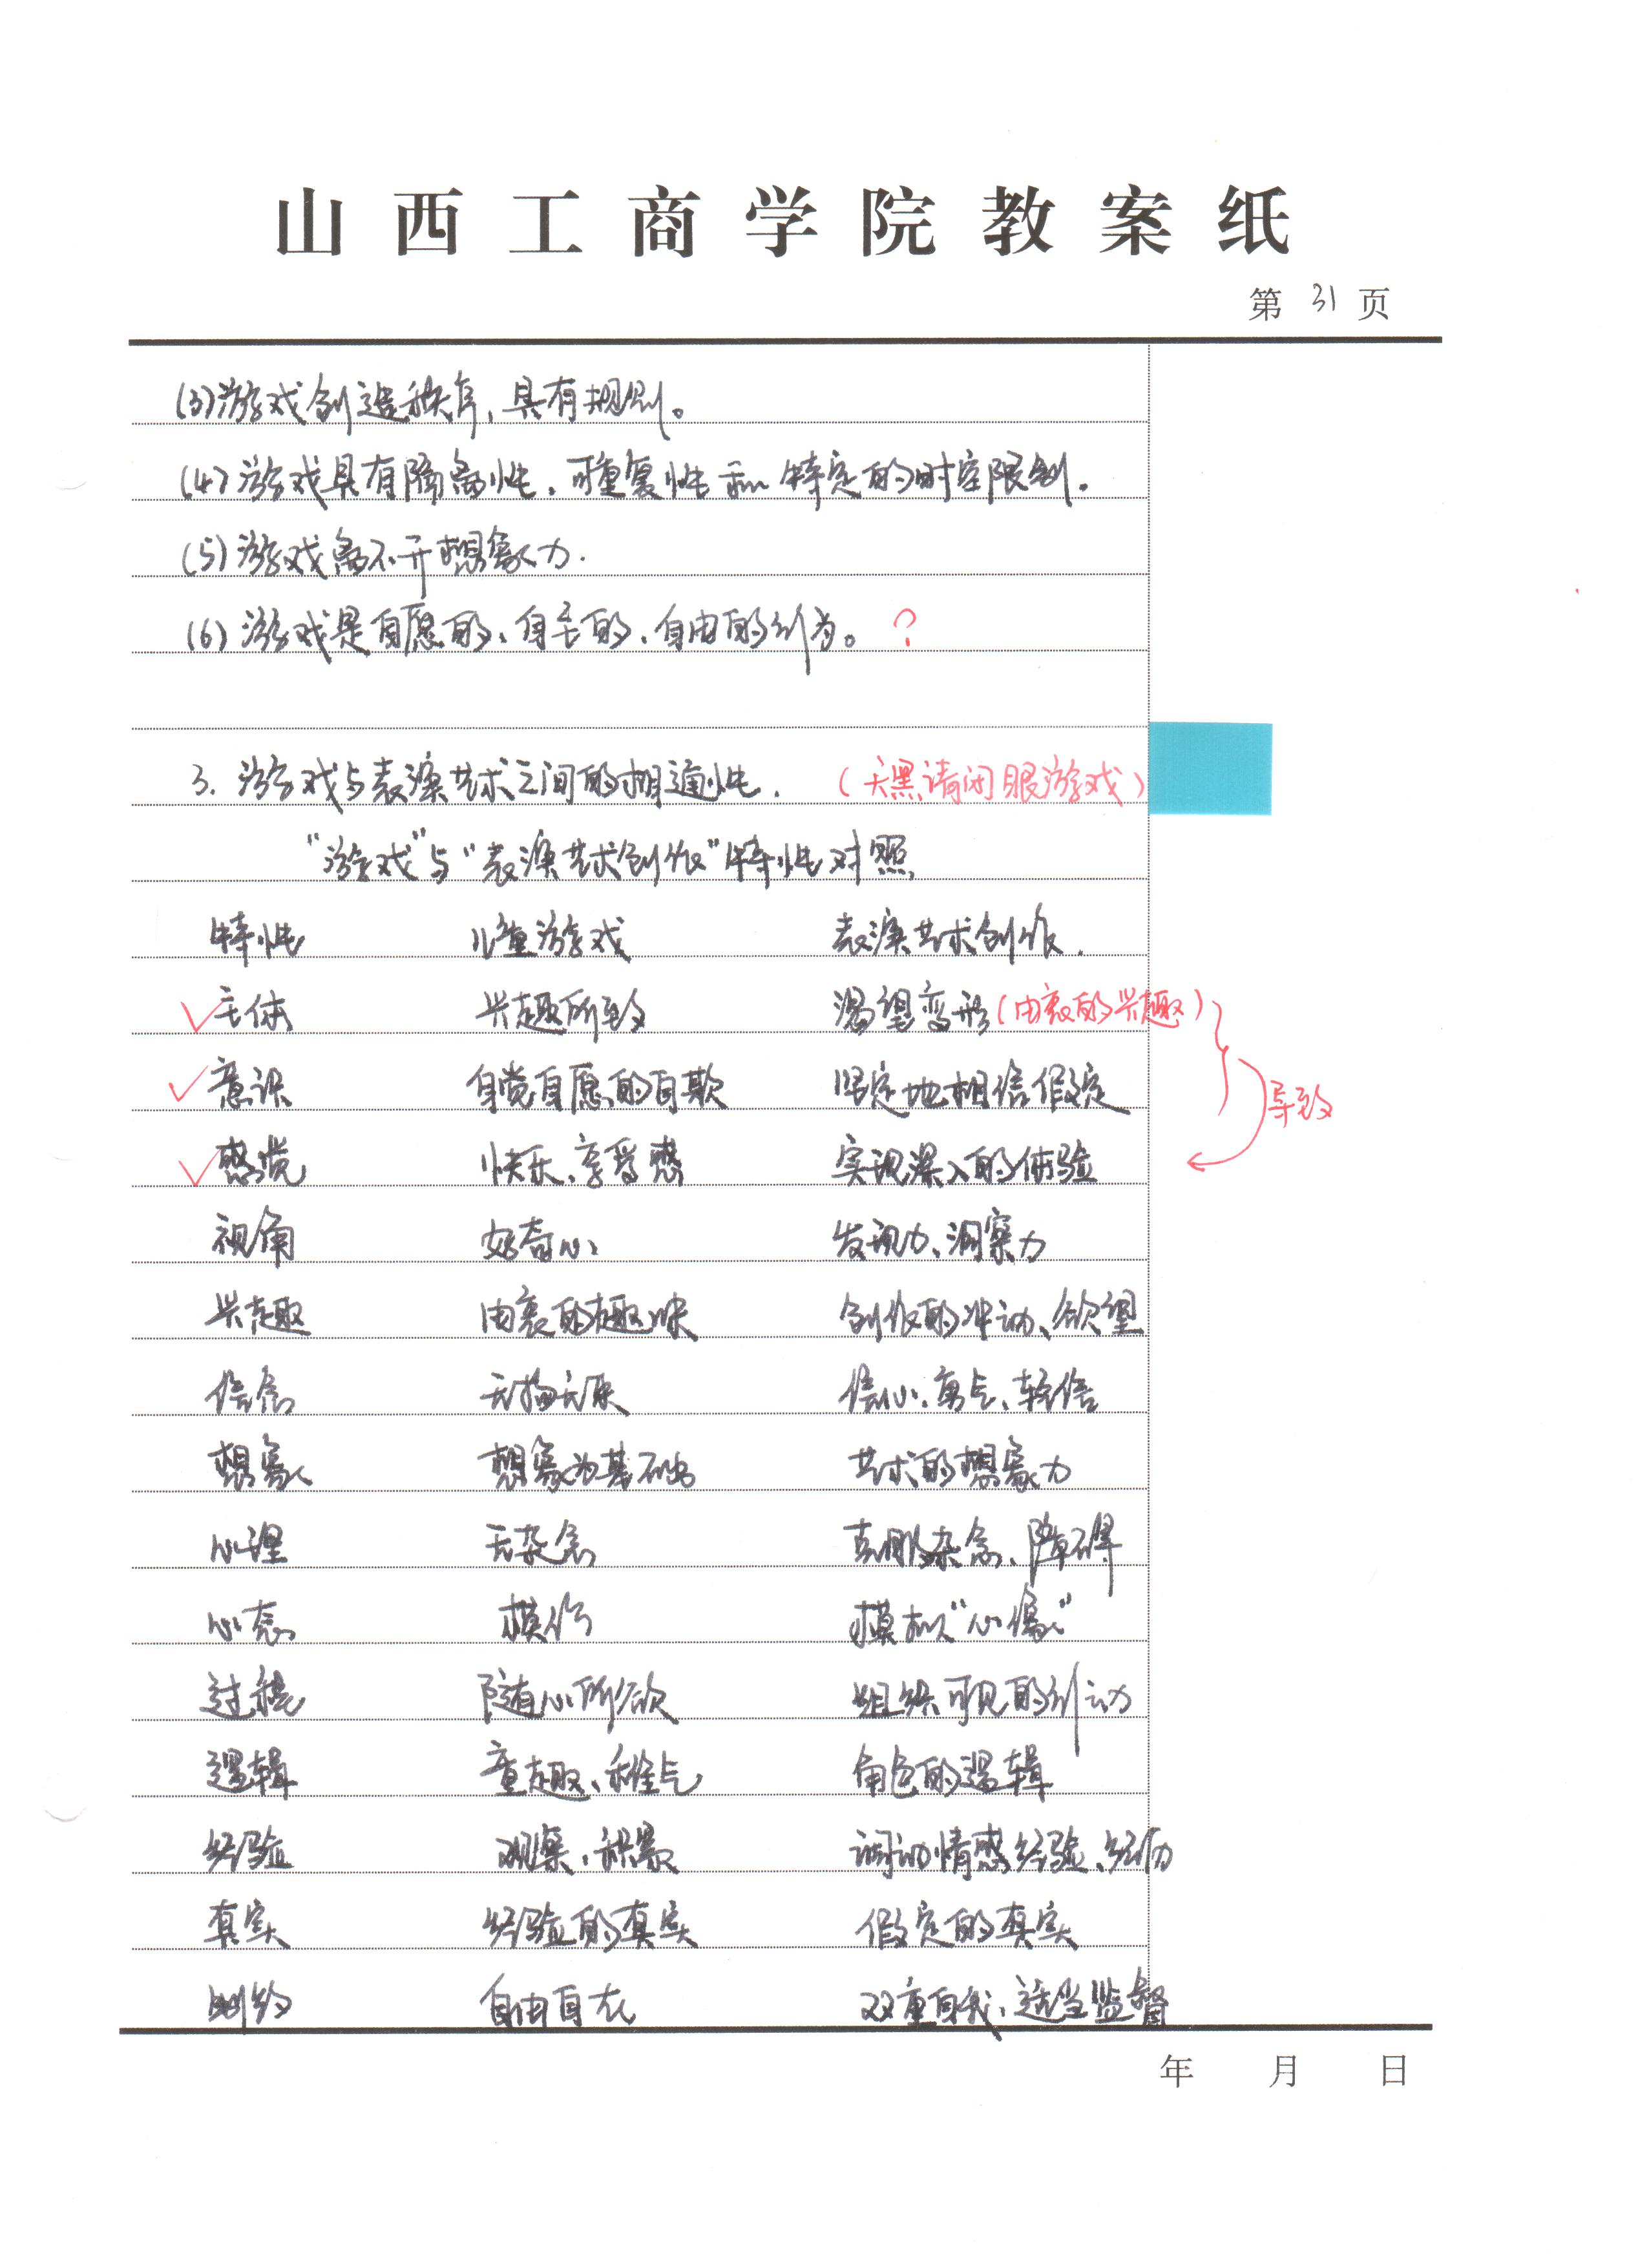 山西工商学院教案纸
第 31 页
(3)游戏创造秩序,具有规则。
(4)游戏具有隔离性、可重复性和特定的时空限制。
(5)游戏离不开想象力.
(6)游戏是自愿的、自主的、自由的行为。 ?
3. 游戏与表演艺术之间的相通性. (天黑请闭眼游戏)
“游戏”与“表演艺术创作”特性对照
特性 儿童游戏 表演艺术创作.
✓主体 兴趣所致 渴望变形(由衷的兴趣)
✓意识 自觉自愿的自欺 坚定地相信假定 导致
✓感觉 快乐、享受感 实现深入的体验
视角 好奇心 发现力、洞察力
兴趣 由衷的趣味 创作的冲动、欲望
信念 无拘无束 信心、勇气、轻信
想象 想象为基础 艺术的想象力
心理 无杂念 克服杂念、障碍
心态 模仿 模拟“心像”
过程 随心所欲 组织可见的行动
逻辑 童趣、稚气 角色的逻辑
经验 观察、积累 调动情感经验、经历
真实 经验的真实 假定的真实
制约 自由自在 双重自我、适当监督
年 月 日